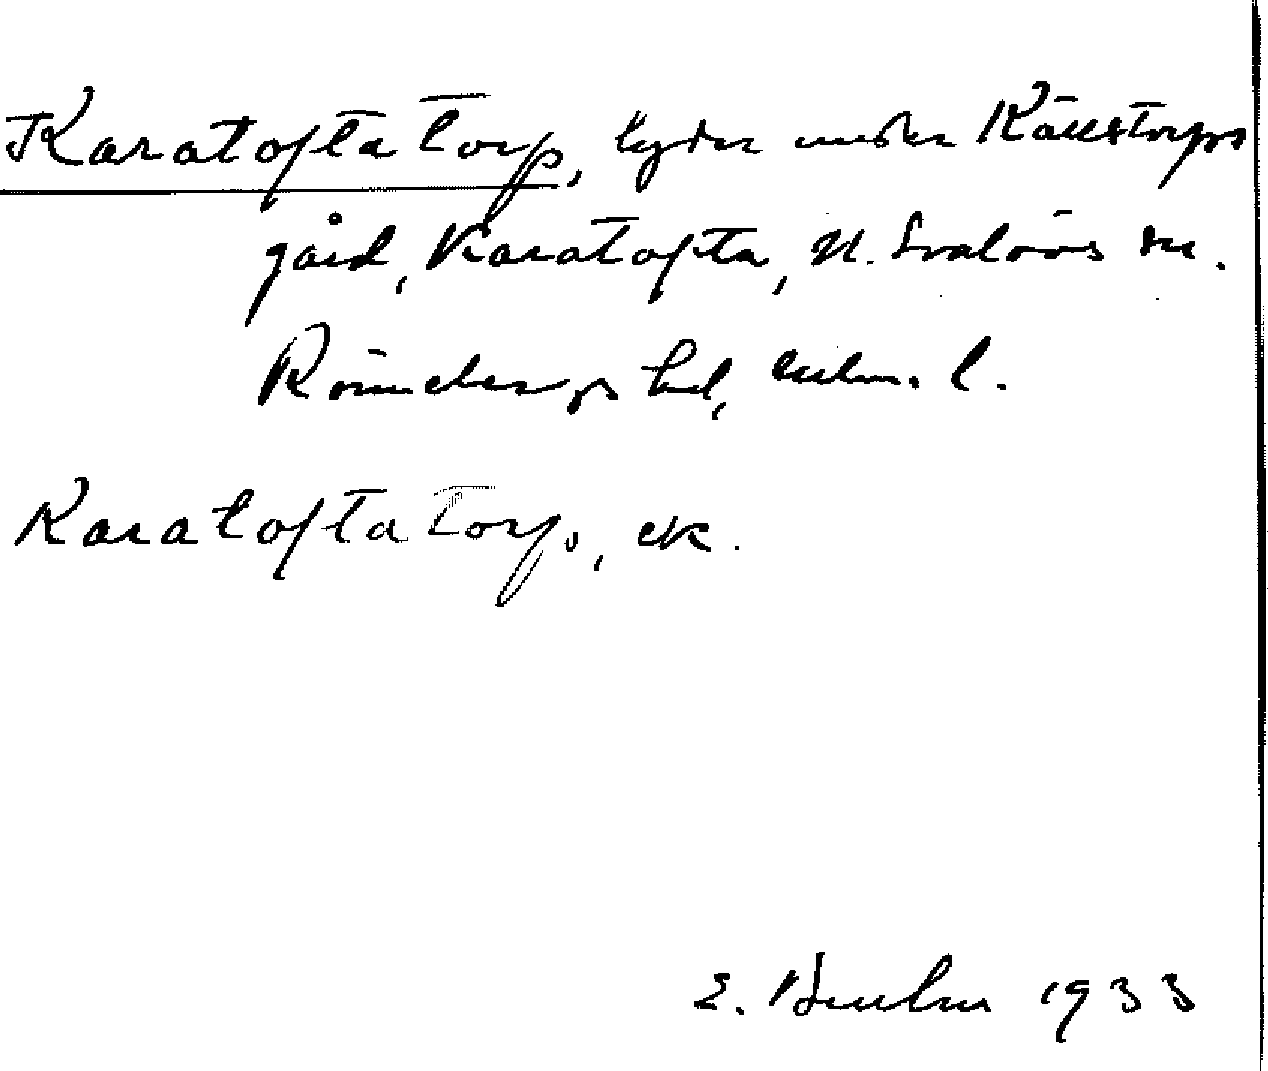 Karatofta torp, lyder under Källstorps
gård, Karatofta, N. Svalövs sn.
Rönnebergs hd, Malm. l.
Karatofta torp, ek.
E. 1933